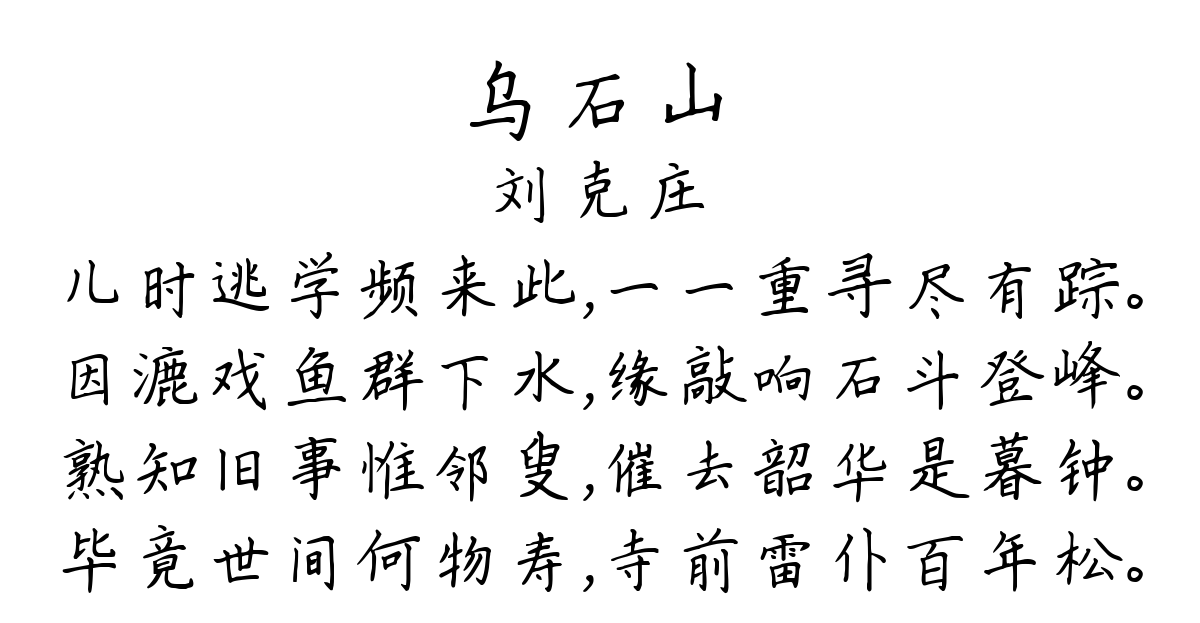 乌石山
刘克庄
儿时逃学频来此,一一重寻尽有踪。
因漉戏鱼群下水,缘敲响石斗登峰。
熟知旧事惟邻叟,催去韶华是暮钟。
毕竟世间何物寿,寺前雷仆百年松。